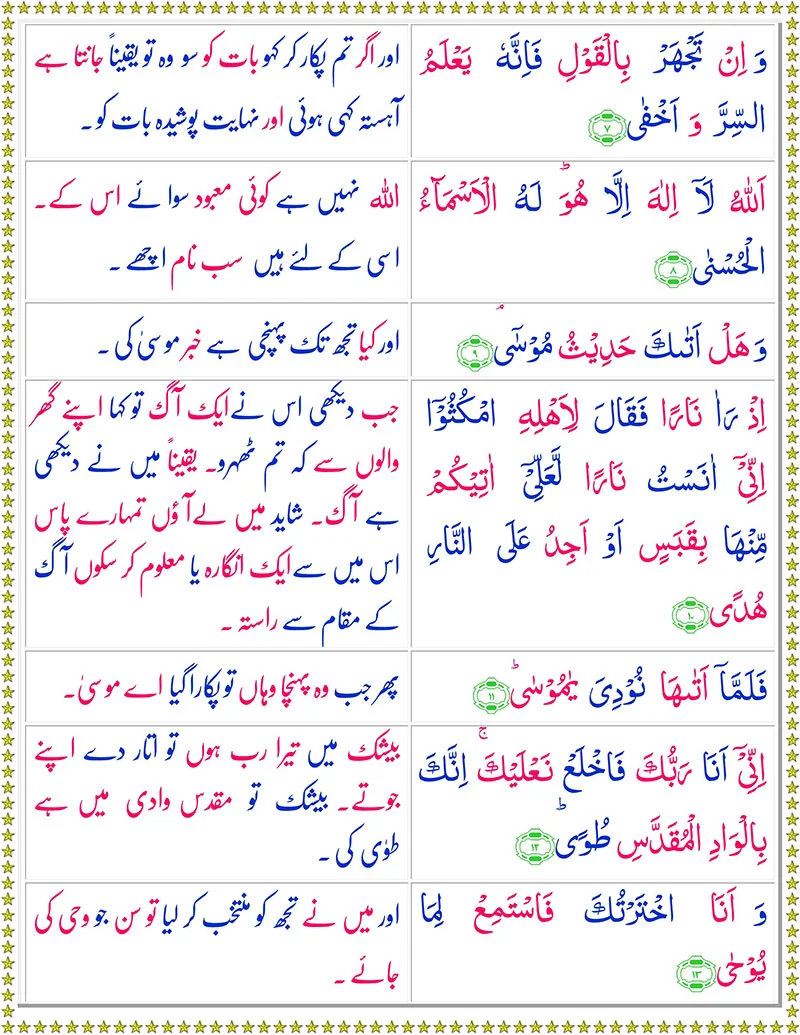 وَ اِنْ تَجْهَرْ بِالْقَوْلِ فَاِنَّهٗ یَعْلَمُ
السِّرَّ وَ اَخْفٰی ۷
اور اگر تم پکار کر کہو بات کو سو وہ تو یقیناً جانتا ہے
آہستہ کہی ہوئی اور نہایت پوشیدہ بات کو۔
اَللّٰهُ لَاۤ اِلٰهَ اِلَّا هُوَ ؕ لَهُ الْاَسْمَآءُ
الْحُسْنٰی ۸
اللہ نہیں ہے کوئی معبود سوائے اس کے۔
اسی کے لئے ہیں سب نام اچھے ۔
وَ هَلْ اَتٰىكَ حَدِیْثُ مُوْسٰی ۘ ۹
اور کیا تجھ تک پہنچی ہے خبر موسیٰ کی ۔
اِذْ رَاٰ نَارًا فَقَالَ لِاَهْلِهِ امْكُثُوْۤا
اِنِّیْۤ اٰنَسْتُ نَارًا لَّعَلِّیْۤ اٰتِیْكُمْ
مِّنْهَا بِقَبَسٍ اَوْ اَجِدُ عَلَی النَّارِ
هُدًی ۱۰
جب دیکھی اس نے ایک آگ تو کہا اپنے گھر
والوں سے کہ تم ٹھہرو۔ یقیناً میں نے دیکھی
ہے آگ۔ شاید میں لے آؤں تمہارے پاس
اس میں سے ایک انگارہ یا معلوم کر سکوں آگ
کے مقام سے راستہ ۔
فَلَمَّاۤ اَتٰىهَا نُوْدِیَ یٰمُوْسٰی ؕ ۱۱
پھر جب وہ پہنچا وہاں تو پکارا گیا اے موسیٰ۔
اِنِّیْۤ اَنَا رَبُّكَ فَاخْلَعْ نَعْلَیْكَ ۚ اِنَّكَ
بِالْوَادِ الْمُقَدَّسِ طُوًی ؕ ۱۲
بیشک میں تیرا رب ہوں تو اتار دے اپنے
جوتے۔ بیشک تو مقدس وادی میں ہے
طوٰی کی ۔
وَ اَنَا اخْتَرْتُكَ فَاسْتَمِعْ لِمَا
یُوْحٰی ۱۳
اور میں نے تجھ کو منتخب کر لیا تو سن جو وحی کی
جائے ۔